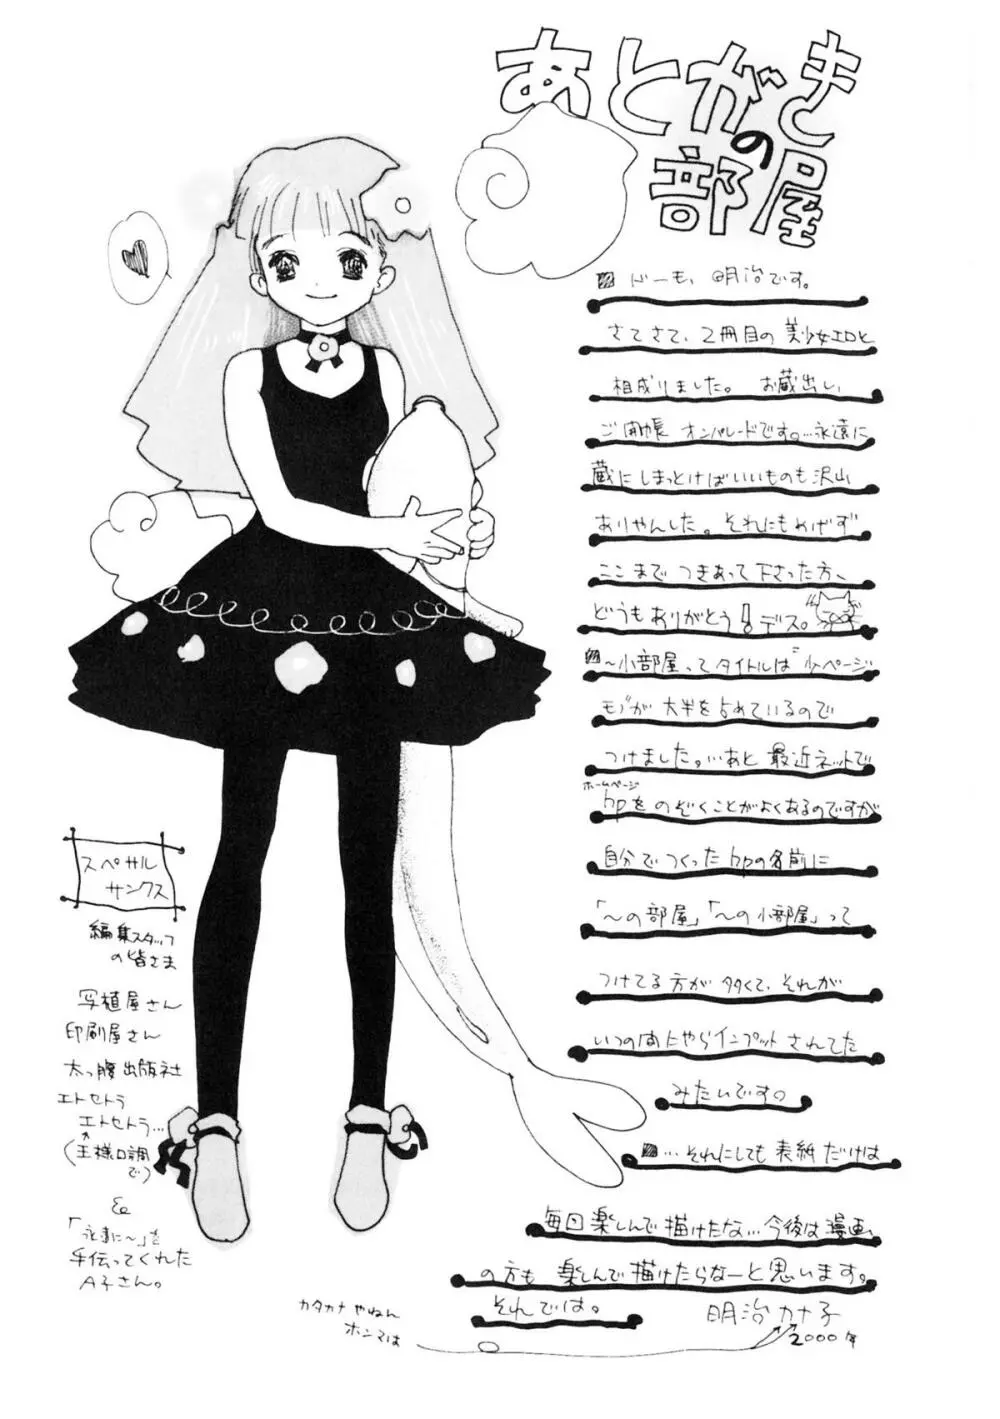 あとがき
の
部屋
ドーモ、明治です。
さてさて、2冊目の美少女エロと
相成りました。 お蔵出し、
ご開帳 オンパレードです。…永遠に
蔵にしまっとけばいいものも沢山
ありやんした。それにもめげず
ここまで つきあって下さった方、
どうもありがとう!デス。
〜小部屋ってタイトルは 少ページ
モノが 大半を占めているので
つけました。…あと 最近ネットで
ホームページ
hpをのぞくことがよくあるのですが
自分でつくったhpの名前に
「〜の部屋」「〜の小部屋」って
つけてる方が多くて、それが
いつの間にやらインプットされてた
みたいです。
…それにしても 表紙だけは
毎回楽しんで描けたな…今後は漫画
の方も 楽しんで描けたらなーと思います。
それでは。
明治カナ子
2000年
カタカナやねん
ホンマは
スペサル
サンクス
編集スタッフ
の皆さま
写植屋さん
印刷屋さん
太っ腹出版社
エトセトラ
エトセトラ…
(王様口調
で)
&
手伝ってくれた
A子さん。